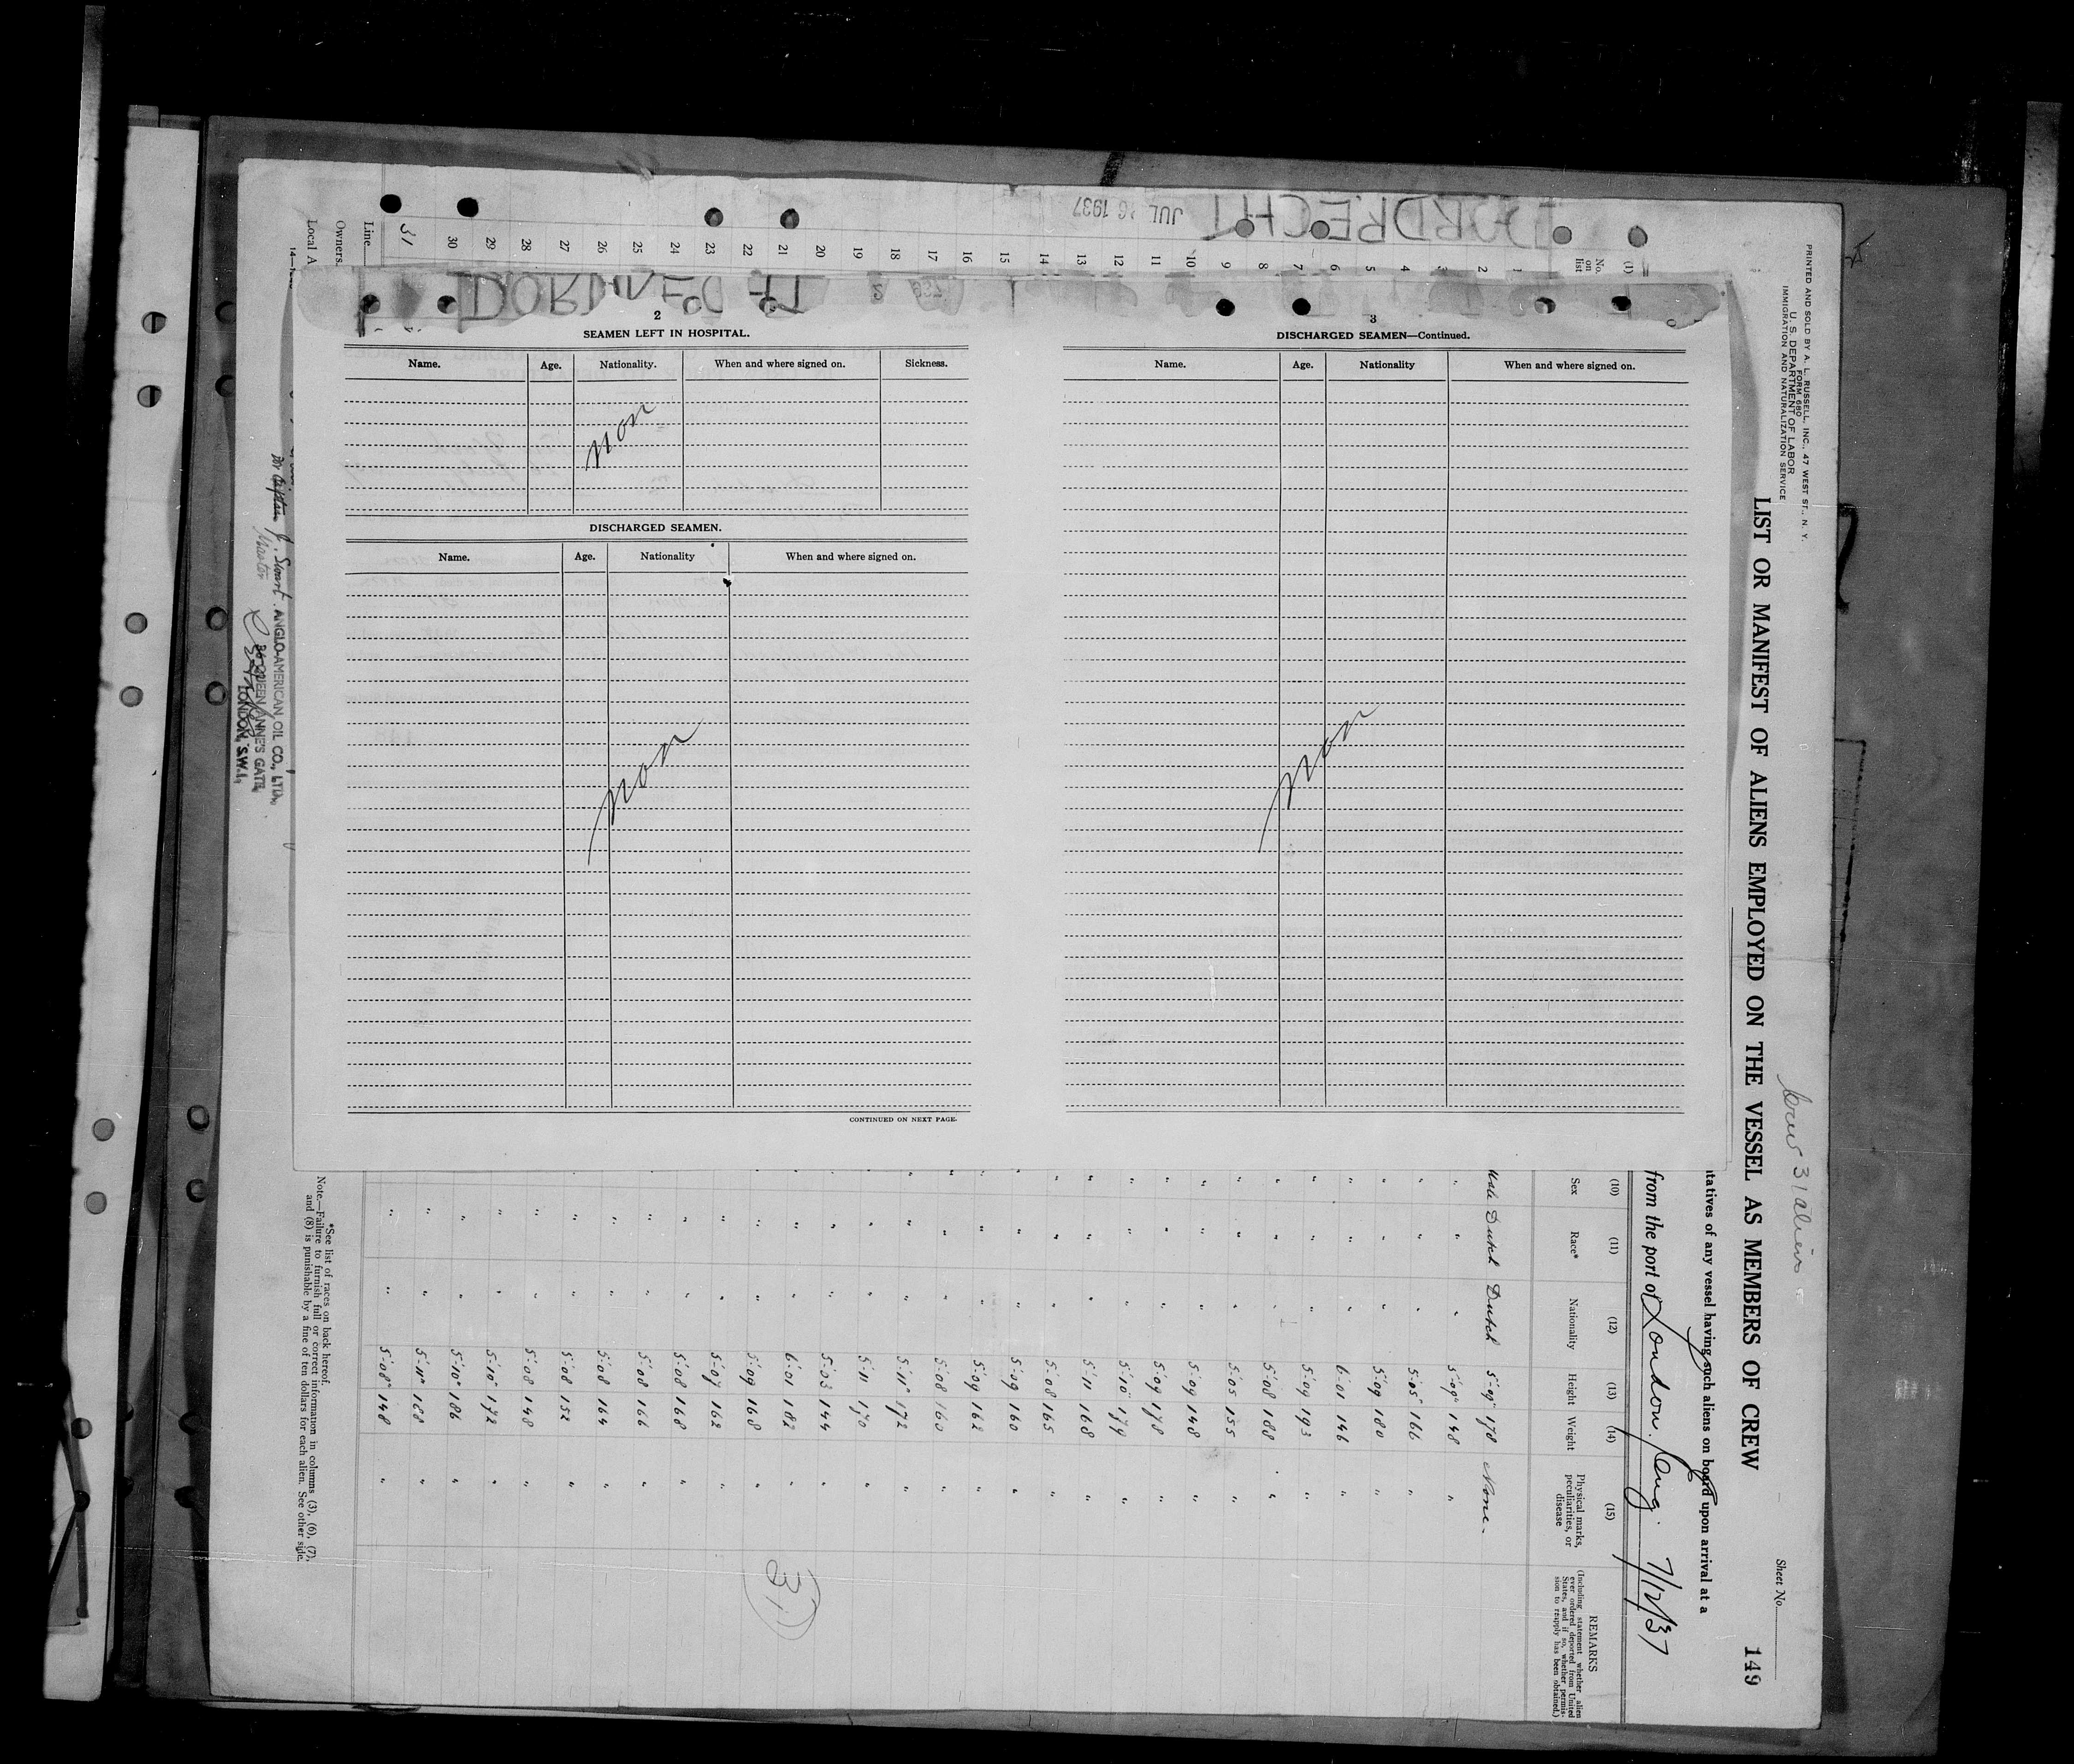 DORDRECHT
JUL 26 1937
2
SEAMEN LEFT IN HOSPITAL.
Name. Age. Nationality. When and where signed on. Sickness.
non
DISCHARGED SEAMEN.
Name. Age. Nationality When and where signed on.
non
CONTINUED ON NEXT PAGE.
3
DISCHARGED SEAMEN—Continued.
Name. Age. Nationality When and where signed on.
non
PRINTED AND SOLD BY A. L. RUSSELL, INC., 47 WEST ST., N. Y.
FORM 680
U. S. DEPARTMENT OF LABOR
IMMIGRATION AND NATURALIZATION SERVICE
Crew 31 aliens
Sheet No.
149
LIST OR MANIFEST OF ALIENS EMPLOYED ON THE VESSEL AS MEMBERS OF CREW
tatives of any vessel having such aliens on board upon arrival at a
from the port of London. Eng. 7/12/37
(1) (10) (11) (12) (13) (14) (15)
No. on list Sex Race* Nationality Height Weight Physical marks, peculiarities, or disease REMARKS
(Including statement whether alien ever ordered deported from United States, and if so, whether permission to reapply has been obtained.)
1 Male Dutch Dutch 5'-09" 178 None.
2 " " " 5'-09" 148 "
3 " " " 5'-05" 166 "
4 " " " 5'-09 180 "
5 " " " 6'-01 146 "
6 " " " 5'-09 193 "
7 " " " 5'-08 188 "
8 " " " 5'-05 155 "
9 " " " 5'-09 148 "
10 " " " 5'-09 178 "
11 " " " 5'-10 179 "
12 " " " 5'-11 168 "
13 " " " 5'-08 165 "
14 " " " 5'-09 160 "
15 " " " 5'-09 162 "
16 " " " 5'-08 160 "
17 " " " 5'-11" 172 "
18 " " " 5'-11 170 "
19 " " " 5'-03 144 "
20 " " " 6'-01 182 "
21 " " " 5'-09 168 "
22 " " " 5'-07 162 "
23 " " " 5'-08 168 "
24 " " " 5'-08 166 "
25 " " " 5'-08 164 "
26 " " " 5'-08 152 "
27 " " " 5'-08 148 "
28 " " " 5'-10" 172 "
29 " " " 5'-10" 186 "
30 " " " 5'-11" 168 "
31 " " " 5'-08" 148 "
31
Line
Owners
Local A
14—
*See list of races on back hereof.
Note.—Failure to furnish full or correct information in columns (3), (6), (7),
and (8) is punishable by a fine of ten dollars for each alien. See other side.
J. Swart
Master
ANGLO-AMERICAN OIL CO., LTD.
36 QUEEN ANNE'S GATE,
LONDON, S.W.1.